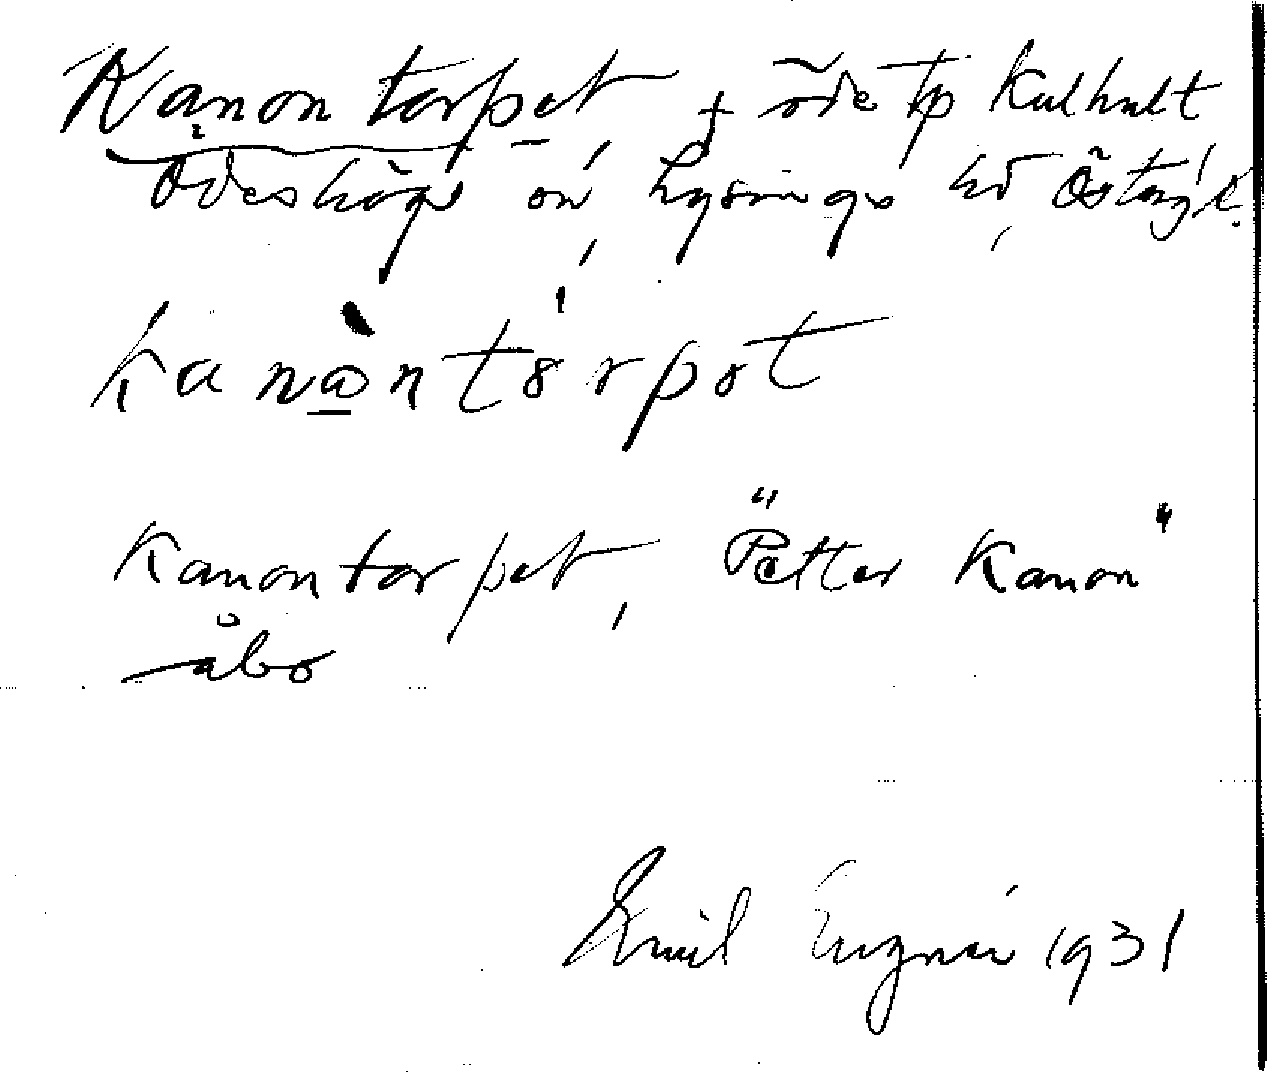 Kanontorpet, † öde tp Kulhult
Ödeshögs sn, Lysings hd, Östergötl.
kanòntórpət
Kanontorpet, "Petter Kanon"
åbo
Emil 1931